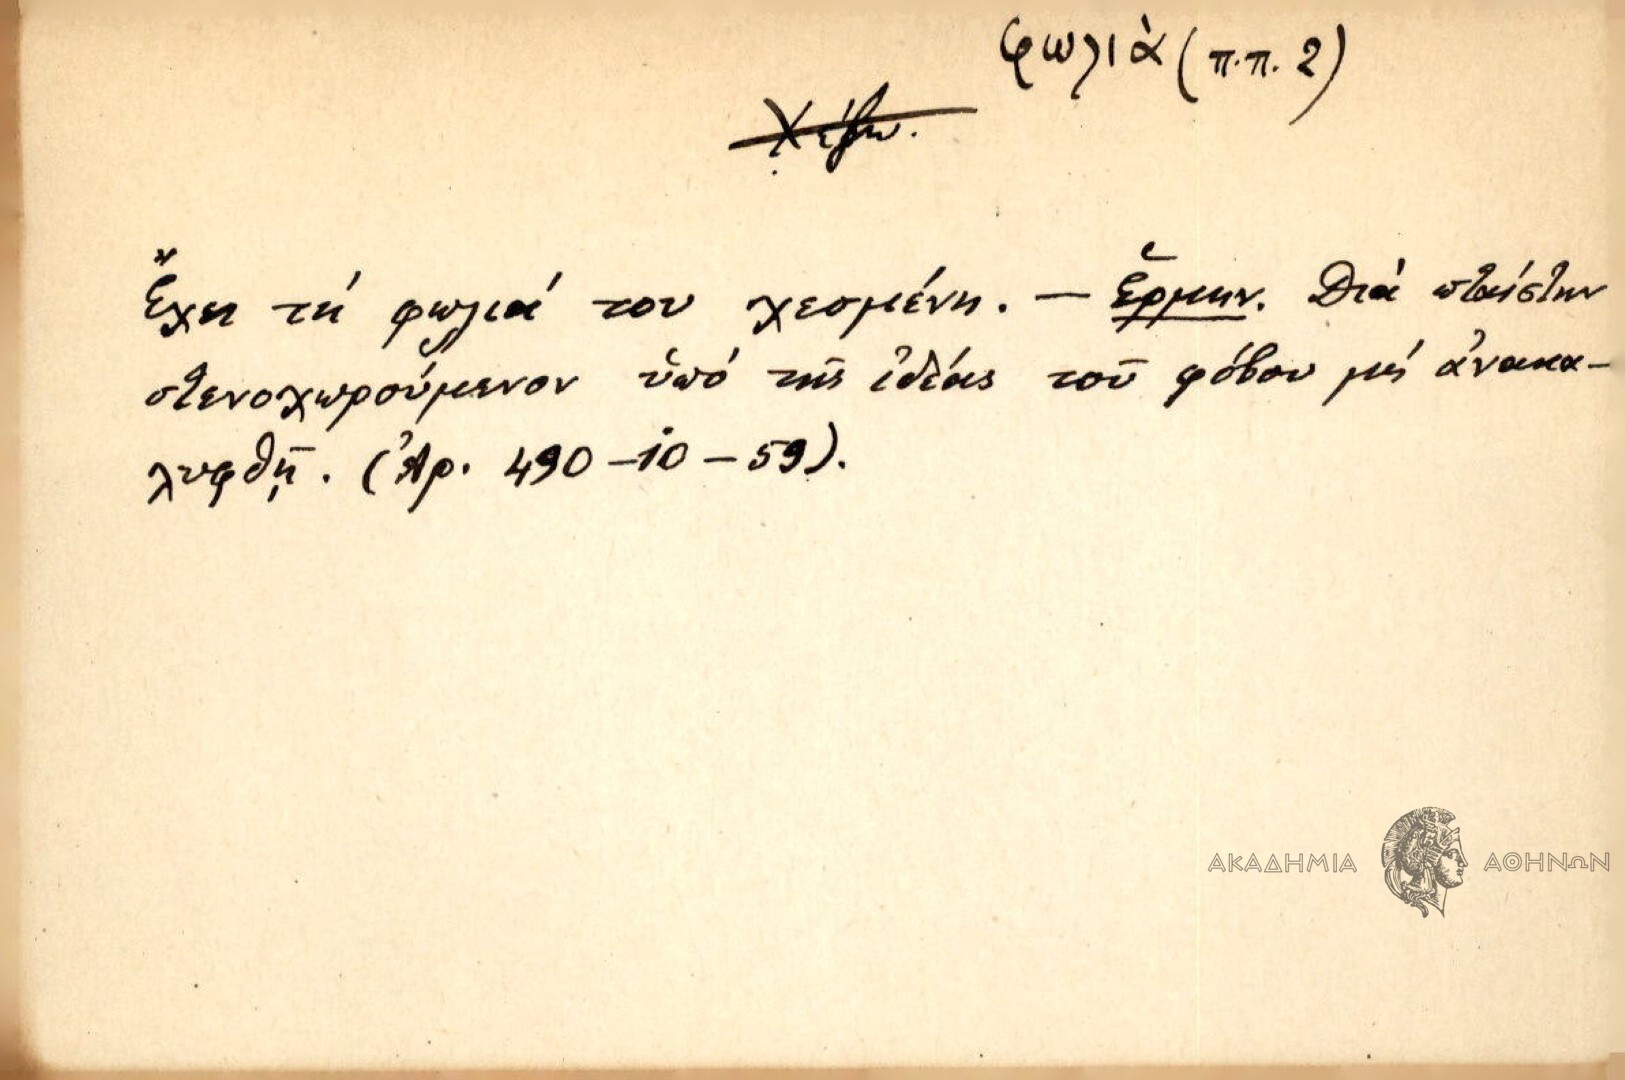 φωλιὰ (π.π. 2)
Χέζω.
Ἔχει τή φωλιά του χεσμένη. — Ἑρμην. Διά πταίστην
στενοχωρούμενον ὑπό τῆς ἰδέας τοῦ φόβου μή ἀνακα-
λυφθῇ. (Ἀρ. 490-10-59).
ΑΚΑΔΗΜΙΑ ΑΘΗΝΩΝ